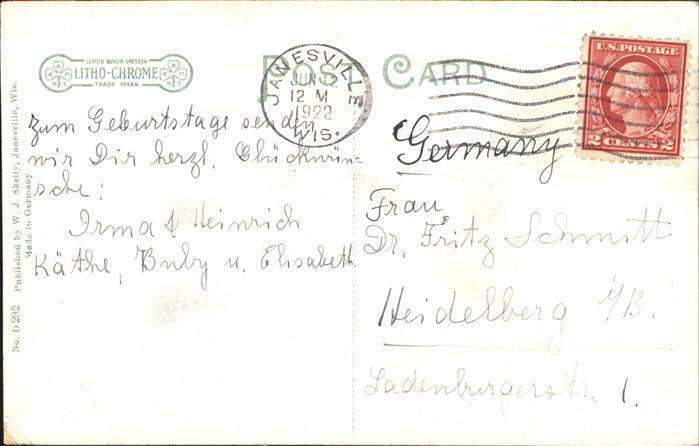 LEIPZIG BERLIN DRESDEN
LITHO-CHROME
TRADE MARK
POST CARD
JANESVILLE
JUN
12 M
1922
WIS.
U.S. POSTAGE
2 CENTS 2
zum Geburtstage senden
wir Dir herzl. Glückwün-
sche:
Irma & Heinrich
Käthe, Buby u. Elisabeth
Germany
Frau
Dr. Fritz Schmitt
Heidelberg i/B.
Ladenburgerstr. 1.
No. D 292 Published by W. J. Skelly, Janesville, Wis.
Made in Germany